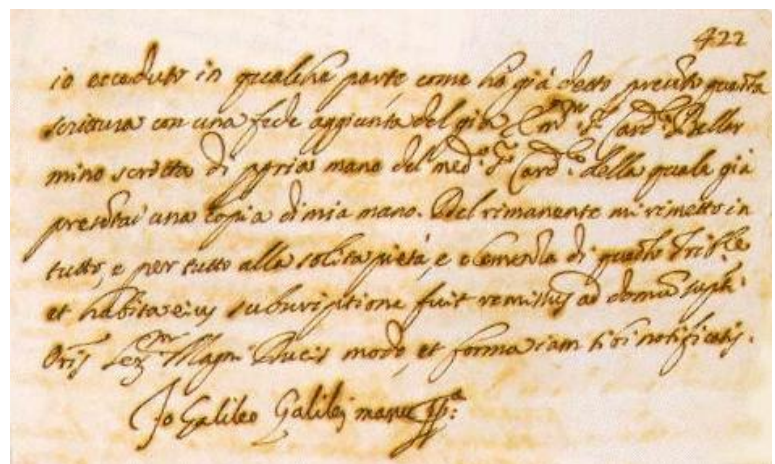 422
io ecceduto in qualche parte come hò già detto pnto questa
scrittura con una fede aggiunta del già Em.mo Sr Card.le Bellar
mino scritta di ppria mano del med.o Sr Card.le della quale già
presentai una copia di mia mano. Del rimanente mi rimetto in
tutto, e per tutto alla solita pietà, e clemenza di questo Trib.le
et habita eius subscriptione fuit remissus ad domum supti
Oris Ser.mi Magni Ducis modo, et forma iam sibi notificatis.
Io Galileo Galilej manu pp.a